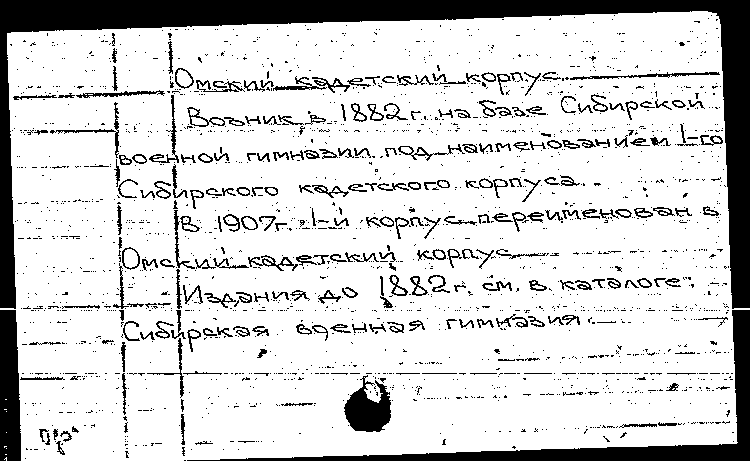 Омский кадетский корпус.
Возник в 1882 г. на базе Сибирской
военной гимназии под наименованием 1-го
Сибирского кадетского корпуса.
В 1907г. 1-й корпус переименован в
Омский кадетский корпус.
Издания до 1882 г. см. в каталоге:
Сибирская военная гимназия.
пр